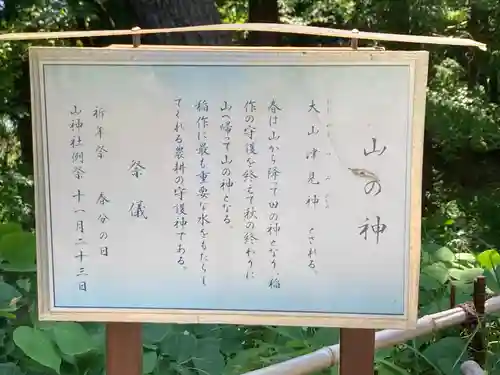 山の神
大山津見神 とされる。
春は山から降りて田の神となり、稲
作の守護を終えて秋の終わりに
山へ帰って山の神となる。
稲作に最も重要な水をもたらし
てくれる農耕の守護神である。
祭儀
祈年祭 春分の日
山神社例祭 十一月二十三日